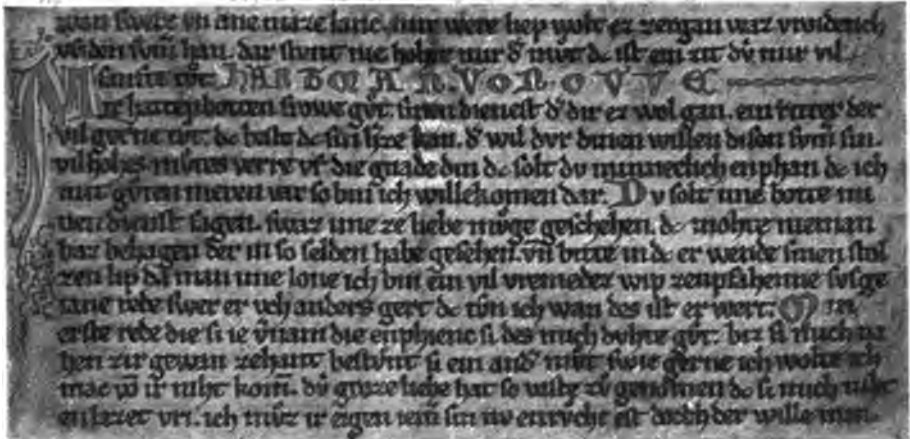 wan swere vn ane maze lanc. mir were liep wolt er zergan waz vroiderich
sumer han. dar stunt nie hoher mir d᾽ mut dc ist ein zit dv́ mir vil
sanfte tůt. HARTMAN. VON. OVWE
Mir hat enbotten frowe gůt. sinen dienest d᾽ dir es wol gan. ein ritter der
vil gerne tůt. dc beste dc sin h᾽ze kan. d᾽ wil dvr dinen willen disen sum᾽ sin.
vil hohes můtes verre vf die gnade din dc solt dv minneclich enphan dc ich
mit gůten meren var so bin ich willekomen dar. Dv solt ime botte mi
nen dienst sagen. swaz ime ze liebe mv́ge geschehen. dc mohte nieman
baz behagen der in so selden habe gesehen. vn̄ bitte in dc er wende sinen stol
zen lip da man ime lone ich bin ein vil vremedez wip zenpfahenne susge
tane rede swes er ǒch anders gert dc tůn ich wan des ist er wert. Min
erste rede die si ie v᾽nam die enphienc si des mich duhte gůt. biz si mich na
hen zir gewan zehant bestůnt si ein and᾽ můt. swie gerne ich wolte ich
mac vō ir niht komē. dv́ groze liebe hat so vaste zů genomen dc si mich niht
enlazet vri. ich můz ir eigen iem᾽ sin nv enrůche est doch der wille min.